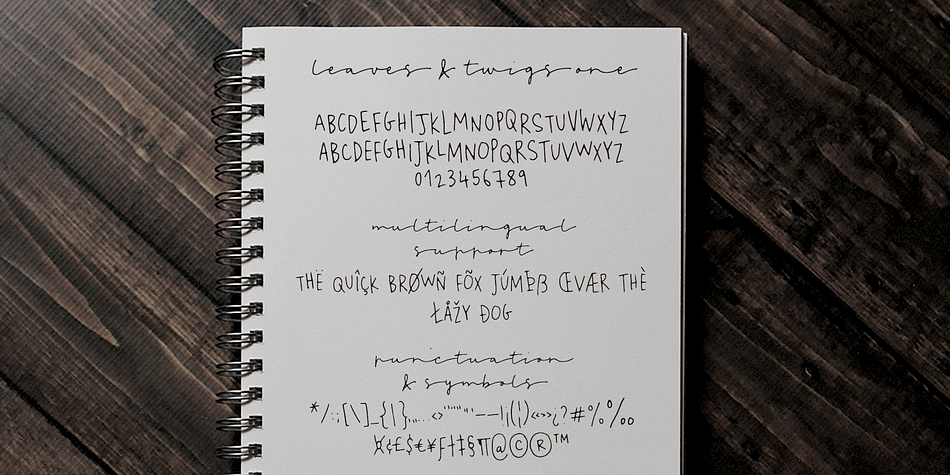 leaves & twigs one
ABCDEFGHIJKLMNOPQRSTUVWXYZ
ABCDEFGHIJKLMNOPQRSTUVWXYZ
0123456789
multilingual
support
THË QUÎÇK BRØWÑ FÕX JÚMÞß ŒVÆR THÈ
ŁÅŽY ÐOG
punctuation
& symbols
*/:;[\]_{|}‚„,.…‹›'"‘’“”–—-!¡(¦)«»›¿?#%‰
¤¢£$€¥ƒ†‡§¶@©®™